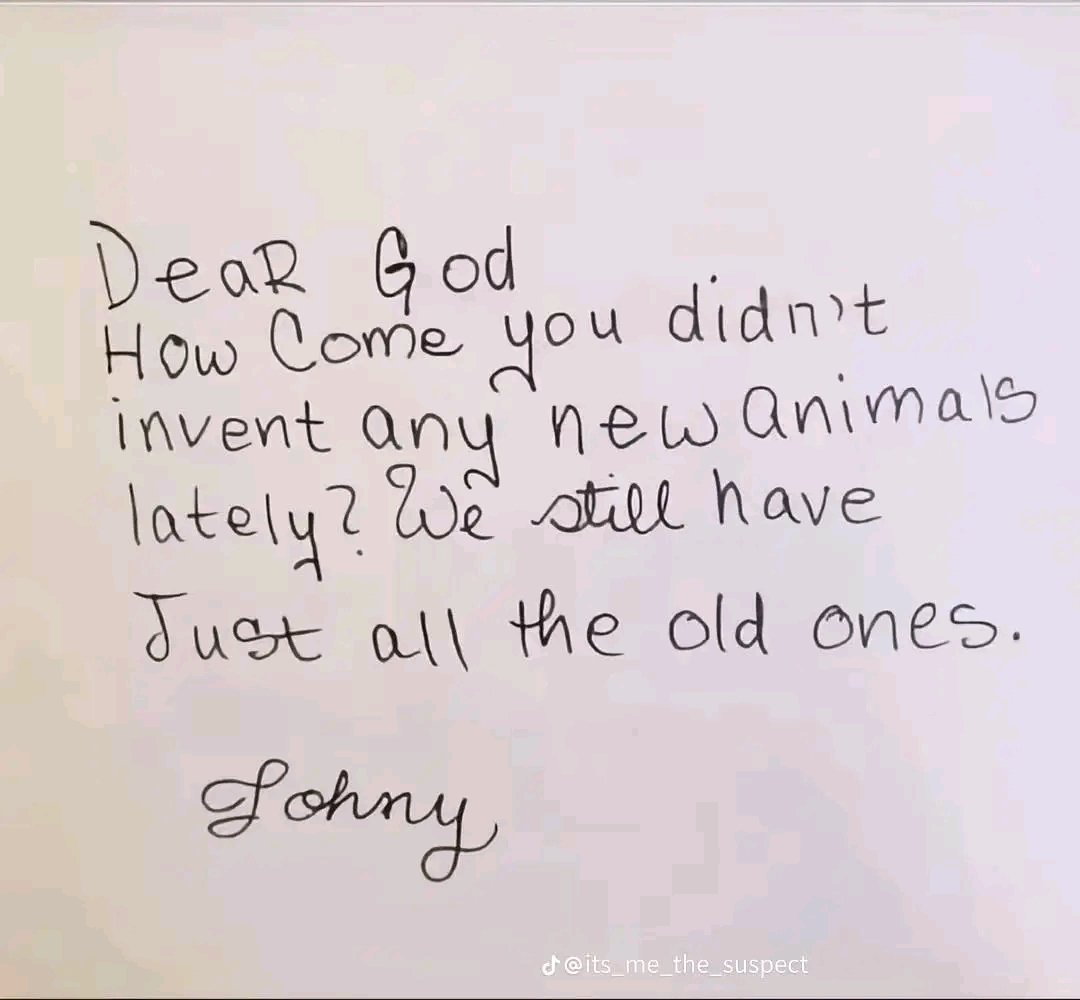 Dear God
How Come you didn't
invent any new animals
lately? We still have
Just all the old ones.
Johny
@its_me_the_suspect